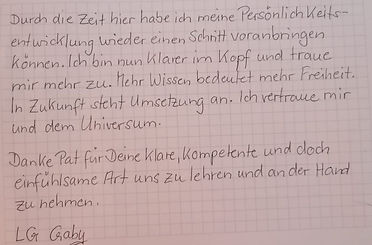 Durch die Zeit hier habe ich meine Persönlichkeits-
entwicklung wieder einen Schritt voranbringen
können. Ich bin nun klarer im Kopf und traue
mir mehr zu. Mehr Wissen bedeutet mehr Freiheit.
In Zukunft steht Umsetzung an. Ich vertraue mir
und dem Universum.
Danke Pat für Deine klare, kompetente und doch
einfühlsame Art uns zu lehren und an der Hand
zu nehmen.
LG Gaby